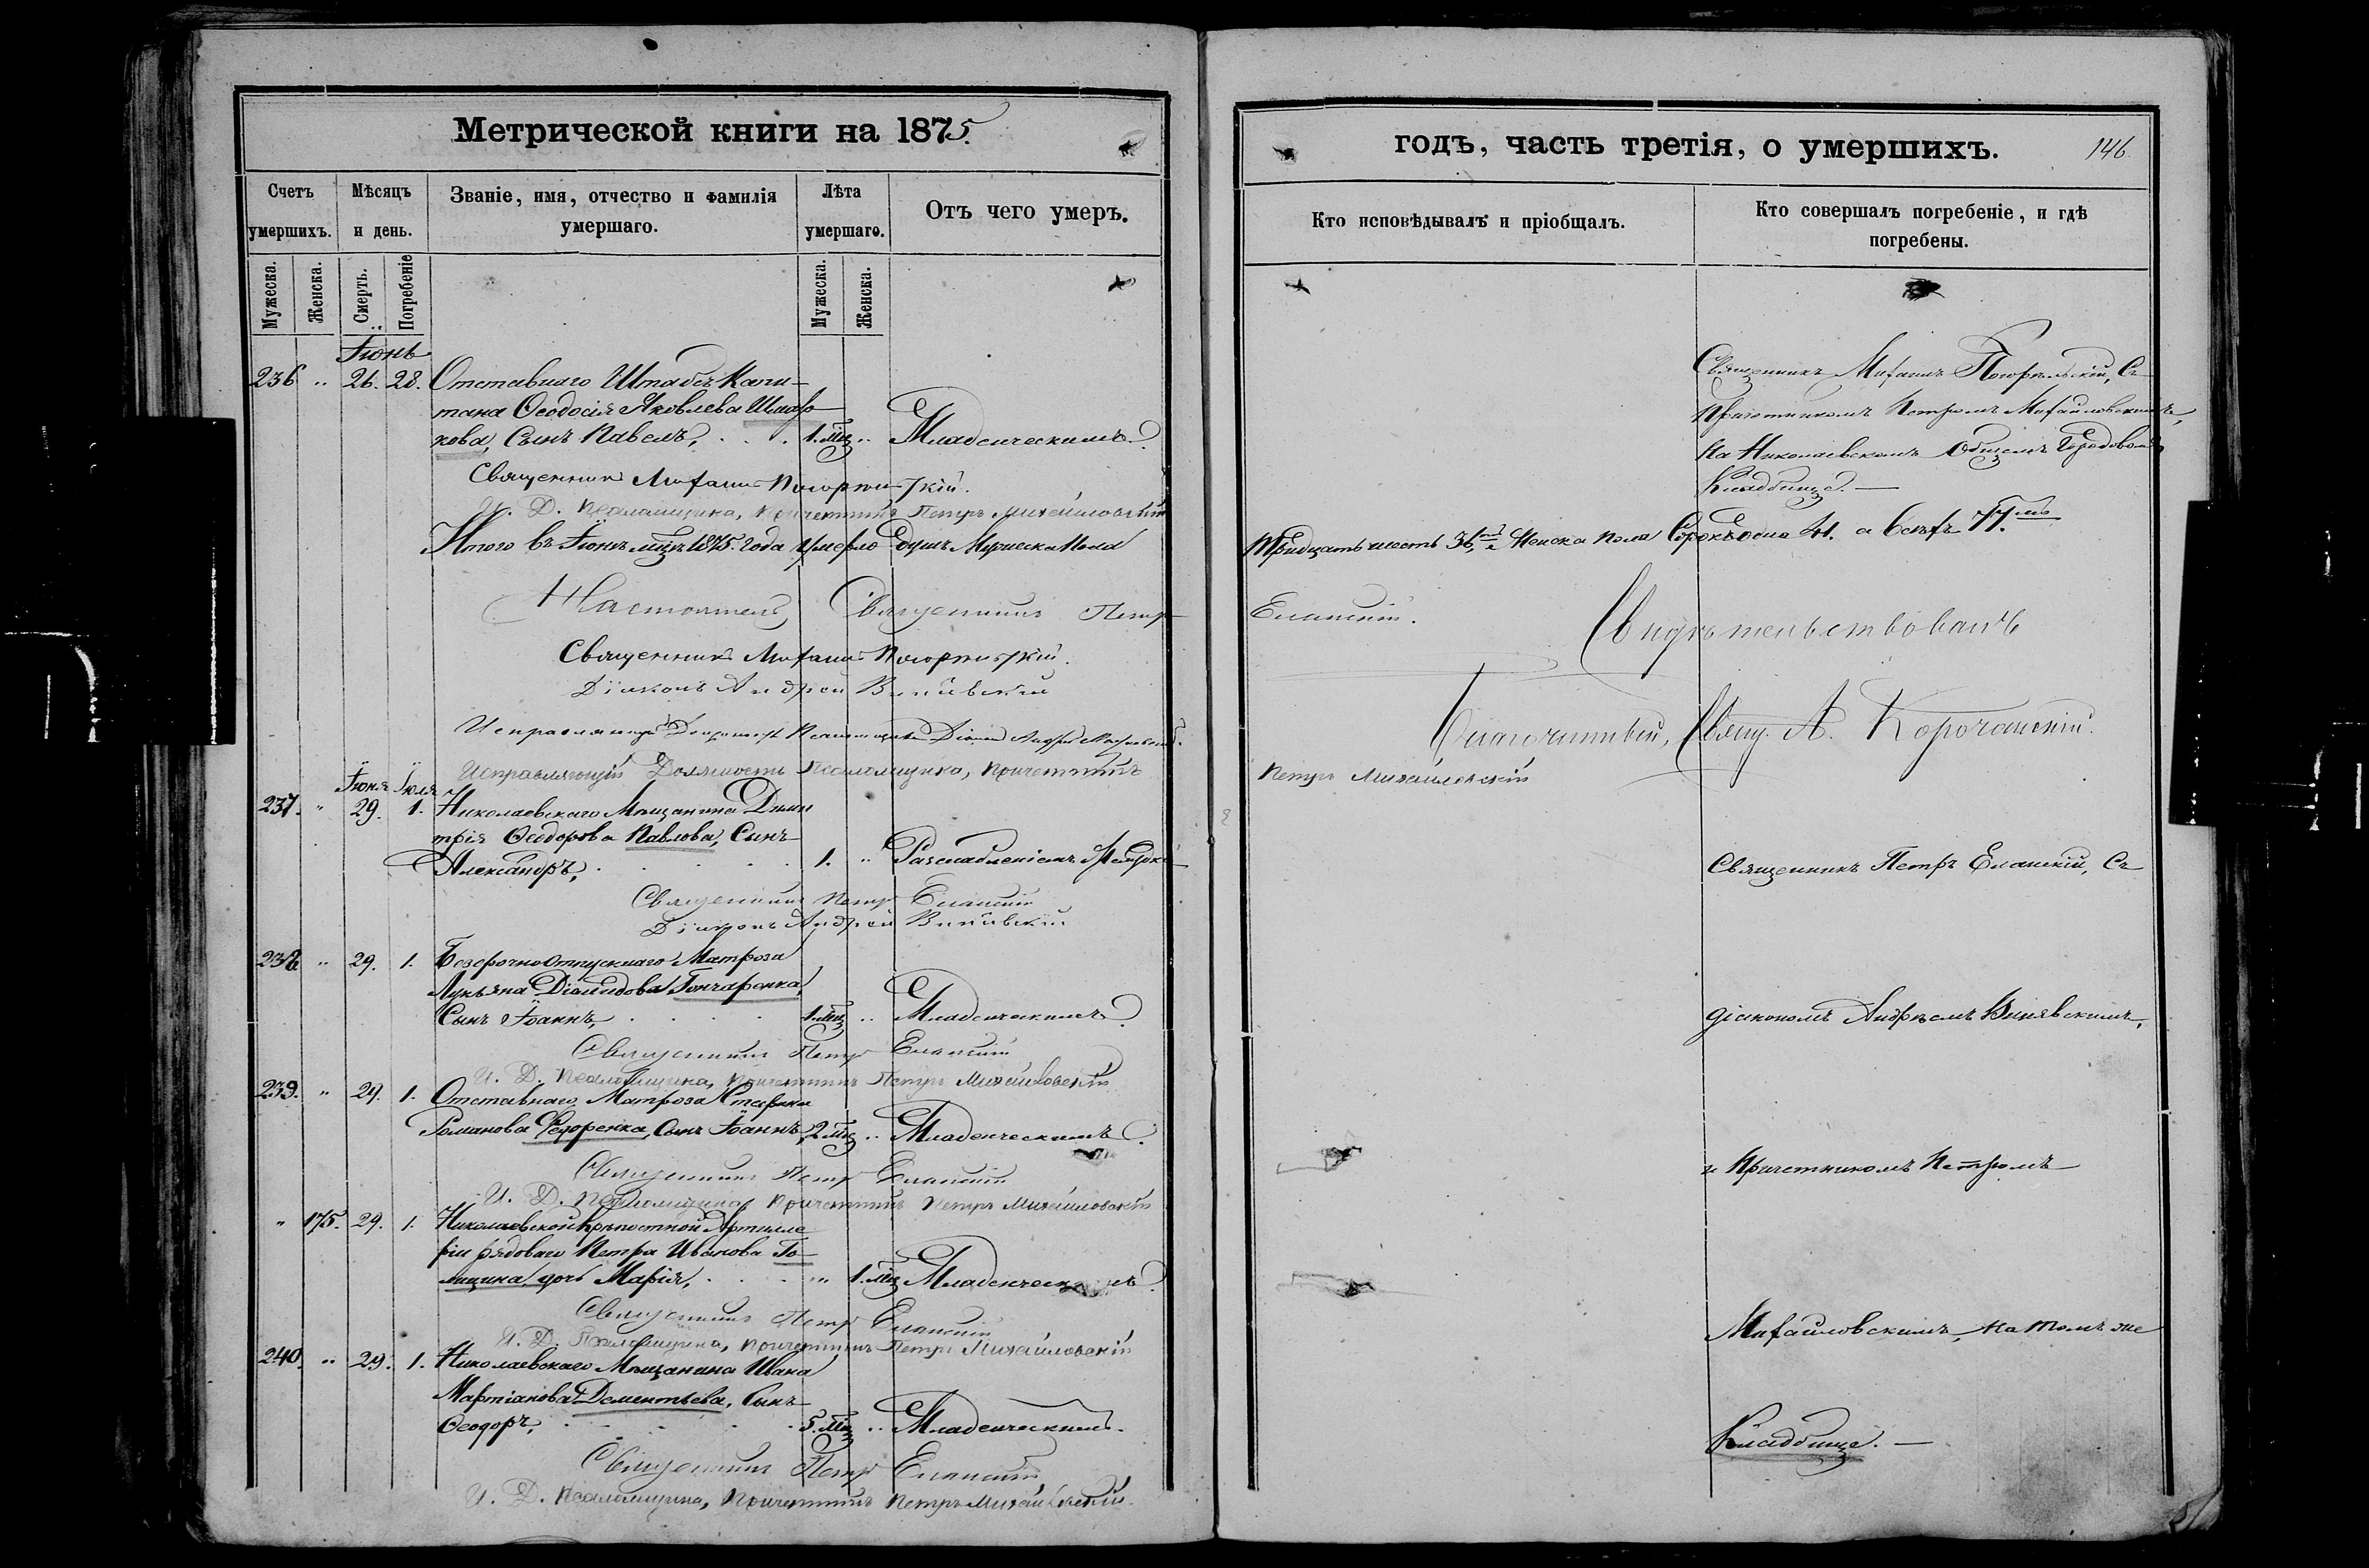 Метрической книги на 1875.
Счетъ умершихъ.
Мѣсяцъ и день.
Званіе, имя, отчество и фамилія умершаго.
Лѣта умершаго.
Отъ чего умеръ.
Мужеска.
Женска.
Смерть.
Погребеніе
Мужеска.
Женска.
Іюнь
236 " 26. 28. Отставнаго Штабсъ Капи-
тана Ѳеодосія Яковлева
кова, Сынъ Павелъ, 1. мц " Младенческимъ.
Священникъ Михаилъ
И. Д. Псаломщика, Причетникъ Петръ Михайловскій
Итого въ Іюнѣ мцѣ 1875. года умерло Душъ Мужеска Пола
Настоятель, Священникъ Петръ
Священникъ Михаилъ
Діаконъ Андрей Винявскій
Исправляющій Должность Псаломщика Діаконъ Андрей
Исправляющій Должность Псаломщика, Причетникъ
Іюня Іюля
237. " 29. 1. Николаевскаго Мѣщанина Дими
трія Ѳеодорова Павлова, Сынъ
Александръ, 1. " Разслабленіемъ
Священникъ Петръ Еланскій
Діаконъ Андрей Винявскій
238 " 29. 1. Безсрочно Отпускнаго Матроса
Лукьяна Діомидова Гончаренка,
Сынъ Іоаннъ, 1. мц " Младенческимъ.
Священникъ Петръ Еланскій
И. Д. Псаломщика, Причетникъ Петръ Михайловскій
239. " 29. 1. Отставнаго Матроса Стефана
Романова Федоренка, Сынъ Іоаннъ, 2 мц " Младенческимъ.
Священникъ Петръ Еланскій
И. Д. Псаломщика, Причетникъ Петръ Михайловскій
" 175. 29. 1. Николаевской Крѣпостной Артилле
ріи рядоваго Петра Иванова Го-
лицина, дочь Марія, " 1. мц Младенческимъ.
Священникъ Петръ Еланскій
И. Д. Псаломщика, Причетникъ Петръ Михайловскій
240. " 29. 1. Николаевскаго Мѣщанина Ивана
Мартіанова Дементьева, Сынъ
Ѳеодоръ, 5. мц " Младенческимъ.
Священникъ Петръ Еланскій
И. Д. Псаломщика, Причетникъ Петръ Михайловскій
годъ, часть третія, о умершихъ.
146.
Кто исповѣдывалъ и пріобщалъ.
Кто совершалъ погребеніе, и гдѣ погребены.
Священникъ Михаилъ Съ
Причетникомъ Петромъ Михайловскимъ,
На Николаевскомъ Общемъ Городовомъ
Кладбищѣ. —
Тридцать шесть 36, и Женска пола Сорокъ одна 41. а всѣхъ 77.
Еланскій.
Свидѣтельствовалъ
Благочинный, Свящ. А. Корочанскій.
Петръ Михайловскій
Священникъ Петръ Еланскій, Съ
діакономъ Андреемъ Винявскимъ,
и Причетникомъ Петромъ
Михайловскимъ, на томъ же
Кладбищѣ. —